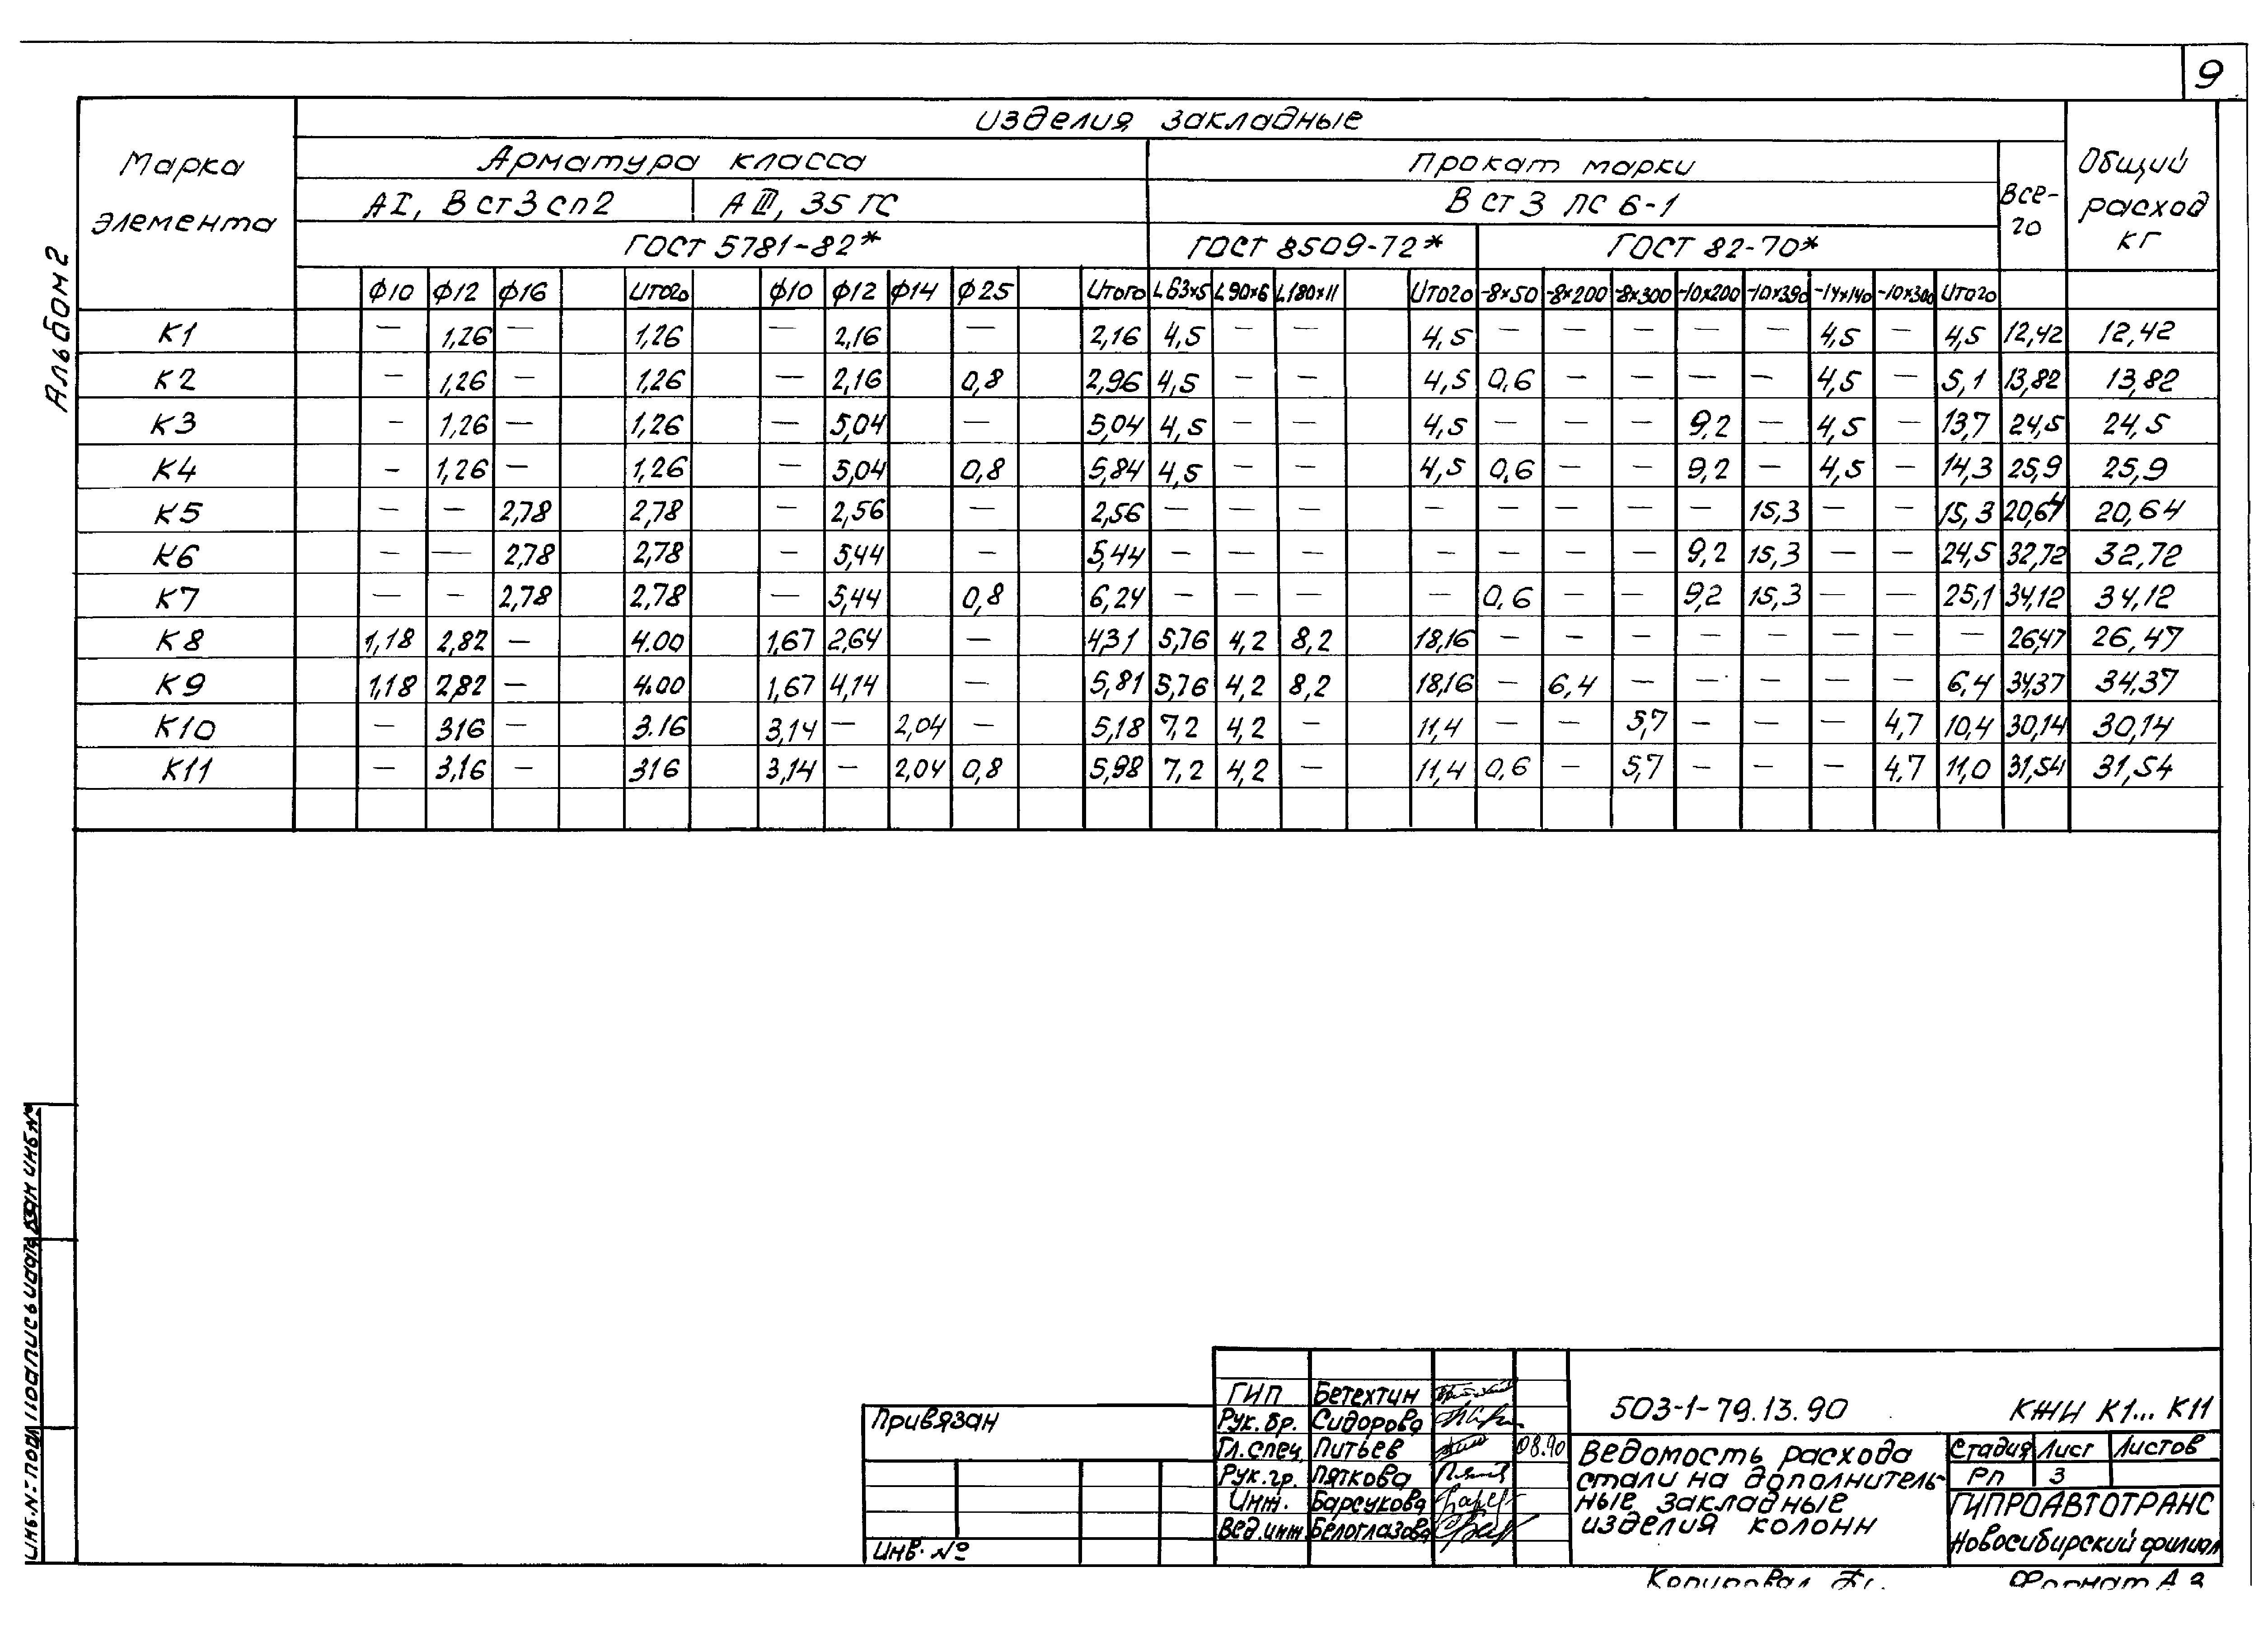 9
Альбом 2
Марка элемента
Изделия закладные
Общий расход кг
Арматура класса
Прокат марки
Все-го
АI, В ст 3 сп 2
АIII, 35 ГС
В ст 3 пс 6-1
ГОСТ 5781-82*
ГОСТ 8509-72*
ГОСТ 82-70*
Ф10 Ф12 Ф16 Итого Ф10 Ф12 Ф14 Ф25 Итого L63x5 L90x6 L180x11 Итого -8x50 -8x200 -8x300 -10x200 -10x390 -14x140 -10x300 Итого
К1 — 1,26 — 1,26 — 2,16 — 2,16 4,5 — — 4,5 — — — — — 4,5 — 4,5 12,42 12,42
К2 — 1,26 — 1,26 — 2,16 0,8 2,96 4,5 — — 4,5 0,6 — — — — 4,5 — 5,1 13,82 13,82
К3 — 1,26 — 1,26 — 5,04 — 5,04 4,5 — — 4,5 — — — 9,2 — 4,5 — 13,7 24,5 24,5
К4 — 1,26 — 1,26 — 5,04 0,8 5,84 4,5 — — 4,5 0,6 — — 9,2 — 4,5 — 14,3 25,9 25,9
К5 — — 2,78 2,78 — 2,56 — 2,56 — — — — — — — — 15,3 — — 15,3 20,64 20,64
К6 — — 2,78 2,78 — 5,44 — 5,44 — — — — — — — 9,2 15,3 — — 24,5 32,72 32,72
К7 — — 2,78 2,78 — 5,44 0,8 6,24 — — — — 0,6 — — 9,2 15,3 — — 25,1 34,12 34,12
К8 1,18 2,82 — 4.00 1,67 2,64 — 431 5,76 4,2 8,2 18,16 — — — — — — — — 26,47 26,47
К9 1,18 2,82 — 4.00 1,67 4,14 — 5,81 5,76 4,2 8,2 18,16 — 6,4 — — — — — 6,4 34,37 34,37
К10 — 316 — 3.16 3,14 — 2,04 — 5,18 7,2 4,2 — 11,4 — — 5,7 — — — 4,7 10,4 30,14 30,14
К11 — 3,16 — 316 3,14 — 2,04 0,8 5,98 7,2 4,2 — 11,4 0,6 — 5,7 — — — 4,7 11,0 31,54 31,54
Привязан
Инв. №
ГИП Бетехтин
Рук. бр. Сидорова
Гл. спец. Питьев 08.90
Рук. гр. Пяткова
Инж. Барсукова
Вед. инж. Белоглазова
503-1-79.13.90 КЖИ К1... К11
Ведомость расхода
стали на дополнитель-
ные закладные
изделия колонн
Стадия Лист Листов
РП 3
ГИПРОАВТОТРАНС
Новосибирский филиал
Копировал
Формат А3
Инв. № подл. Подпись и дата Взам инв №